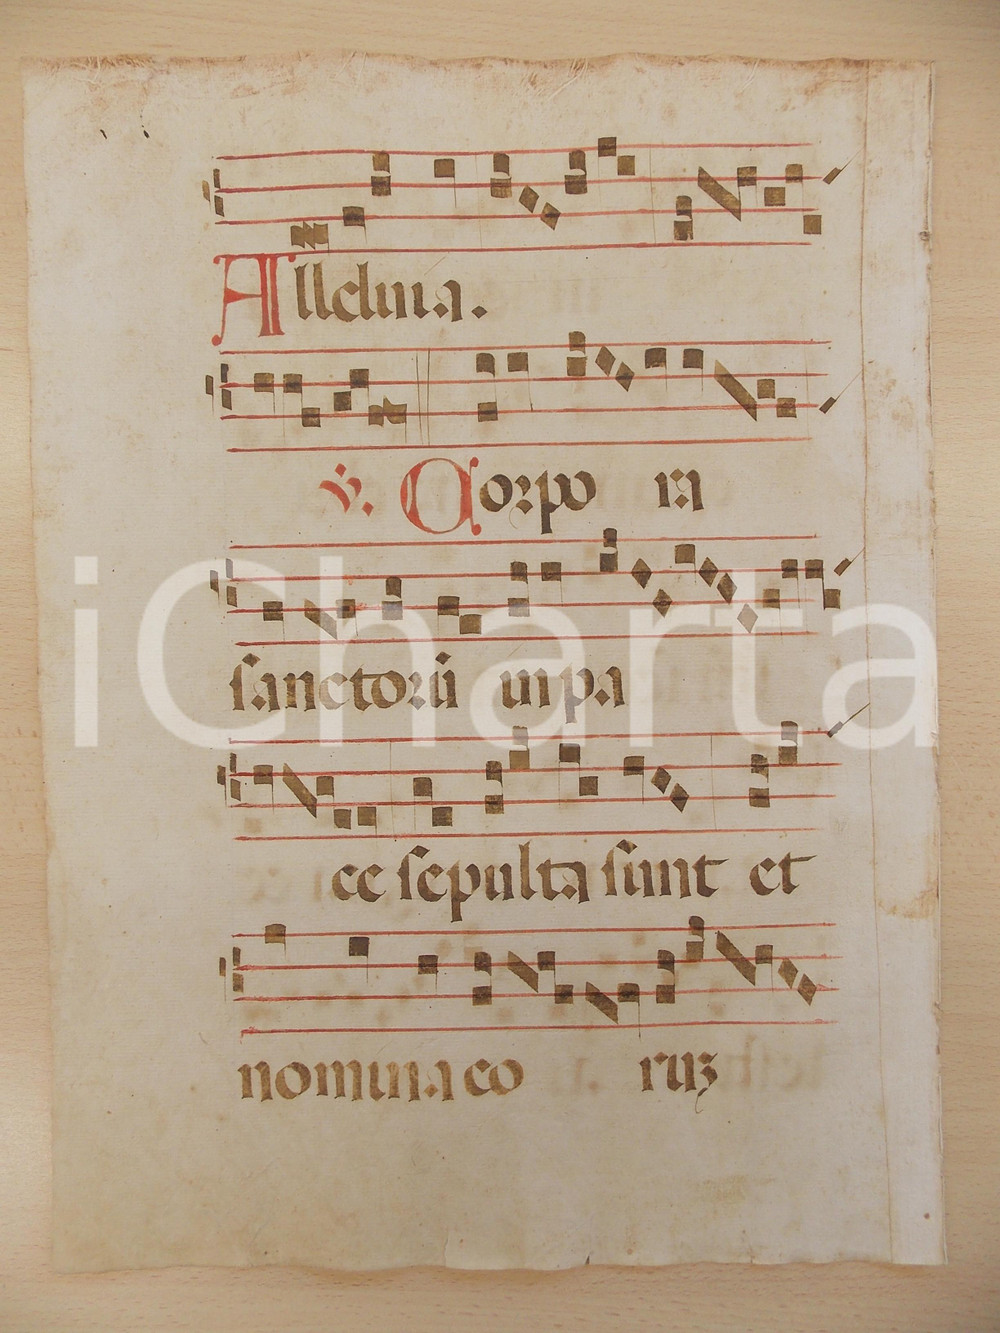 Alleluia.
v. Corpo ra
sanctorū in pa
ce sepulta sunt et
nomina eo ruʒ
iCharta